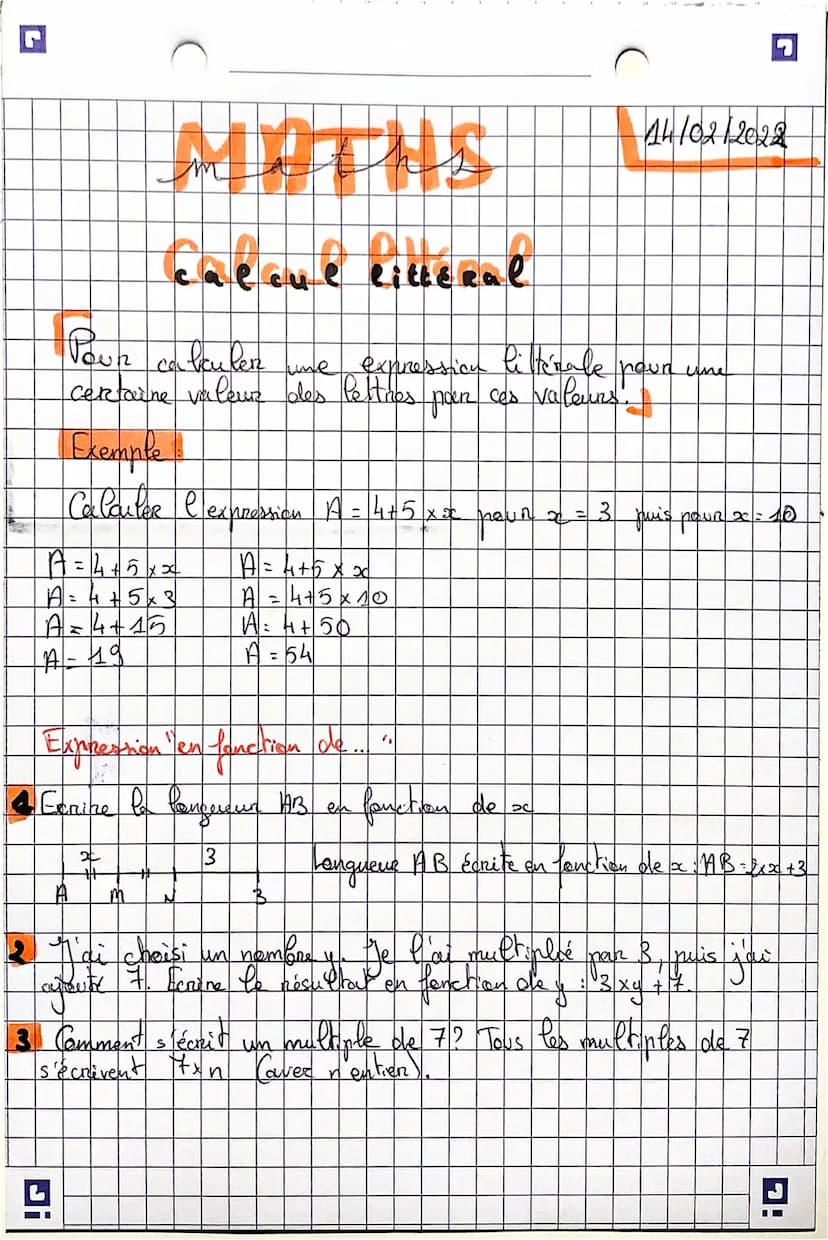 14/02/2022
MATHS
maths
Calcul littéral
Pour calculer une expression littérale pour une
certaine valeur des lettres par ces valeurs.
Exemple :
Calculer l'expression A = 4+5 × x pour x = 3 puis pour x = 10
A = 4+5 × x A = 4+5 × x
A = 4 + 5×3 A = 4+5 × 10
A = 4+15 A = 4+50
A = 19 A = 54
Expression "en fonction de... "
1 Ecrire la longueur AB en fonction de x
x 3 Longueur AB écrite en fonction de x : AB = 2×x + 3
A M N B
2 J'ai choisi un nombre y. Je l'ai multiplié par 3, puis j'ai
ajouté 7. Ecrire le résultat en fonction de y : 3 × y + 7.
3 Comment s'écrit un multiple de 7? Tous les multiples de 7
s'écrivent 7×n (avec n entier).